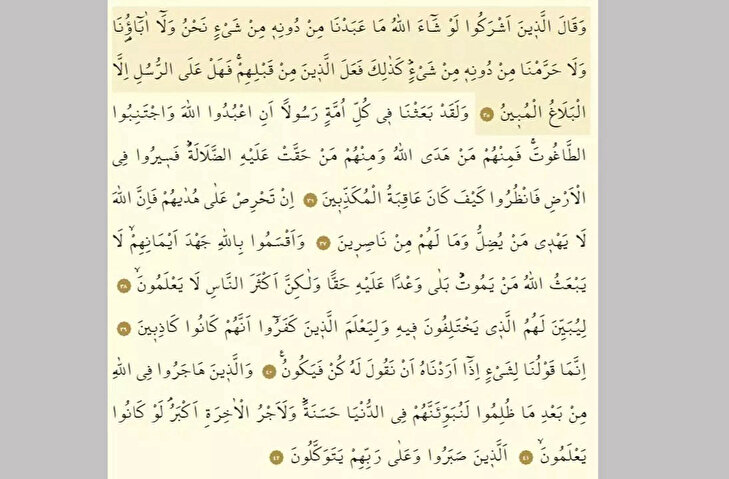 وَقَالَ الَّذٖينَ اَشْرَكُوا لَوْ شَٓاءَ اللّٰهُ مَا عَبَدْنَا مِنْ دُونِهٖ مِنْ شَیْءٍ نَحْنُ وَلَٓا اٰبَٓاؤُ۬نَا
وَلَا حَرَّمْنَا مِنْ دُونِهٖ مِنْ شَیْءٍؕ كَذٰلِكَ فَعَلَ الَّذٖينَ مِنْ قَبْلِهِمْۚ فَهَلْ عَلَى الرُّسُلِ اِلَّا
الْبَلَاغُ الْمُبٖينُ ﴿٣٥﴾ وَلَقَدْ بَعَثْنَا فٖى كُلِّ اُمَّةٍ رَسُولًا اَنِ اعْبُدُوا اللّٰهَ وَاجْتَنِبُوا
الطَّاغُوتَۚ فَمِنْهُمْ مَنْ هَدَى اللّٰهُ وَمِنْهُمْ مَنْ حَقَّتْ عَلَيْهِ الضَّلَالَةُؕ فَسٖيرُوا فِى
الْاَرْضِ فَانْظُرُوا كَيْفَ كَانَ عَاقِبَةُ الْمُكَذِّبٖينَ ﴿٣٦﴾ اِنْ تَحْرِصْ عَلٰى هُدٰيهُمْ فَاِنَّ اللّٰهَ
لَا يَهْدٖى مَنْ يُضِلُّ وَمَا لَهُمْ مِنْ نَاصِرٖينَ ﴿٣٧﴾ وَاَقْسَمُوا بِاللّٰهِ جَهْدَ اَيْمَانِهِمْۙ لَا
يَبْعَثُ اللّٰهُ مَنْ يَمُوتُؕ بَلٰى وَعْدًا عَلَيْهِ حَقًّا وَلٰكِنَّ اَكْثَرَ النَّاسِ لَا يَعْلَمُونَۙ ﴿٣٨﴾
لِيُبَيِّنَ لَهُمُ الَّذٖى يَخْتَلِفُونَ فٖيهِ وَلِيَعْلَمَ الَّذٖينَ كَفَرُٓوا اَنَّهُمْ كَانُوا كَاذِبٖينَ ﴿٣٩﴾
اِنَّمَا قَوْلُنَا لِشَیْءٍ اِذَٓا اَرَدْنَاهُ اَنْ نَقُولَ لَهُ كُنْ فَيَكُونُ۟ ﴿٤٠﴾ وَالَّذٖينَ هَاجَرُوا فِى اللّٰهِ
مِنْ بَعْدِ مَا ظُلِمُوا لَنُبَوِّئَنَّهُمْ فِى الدُّنْيَا حَسَنَةًؕ وَلَاَجْرُ الْاٰخِرَةِ اَكْبَرُۢ لَوْ كَانُوا
يَعْلَمُونَۙ ﴿٤١﴾ اَلَّذٖينَ صَبَرُوا وَعَلٰى رَبِّهِمْ يَتَوَكَّلُونَ ﴿٤٢﴾